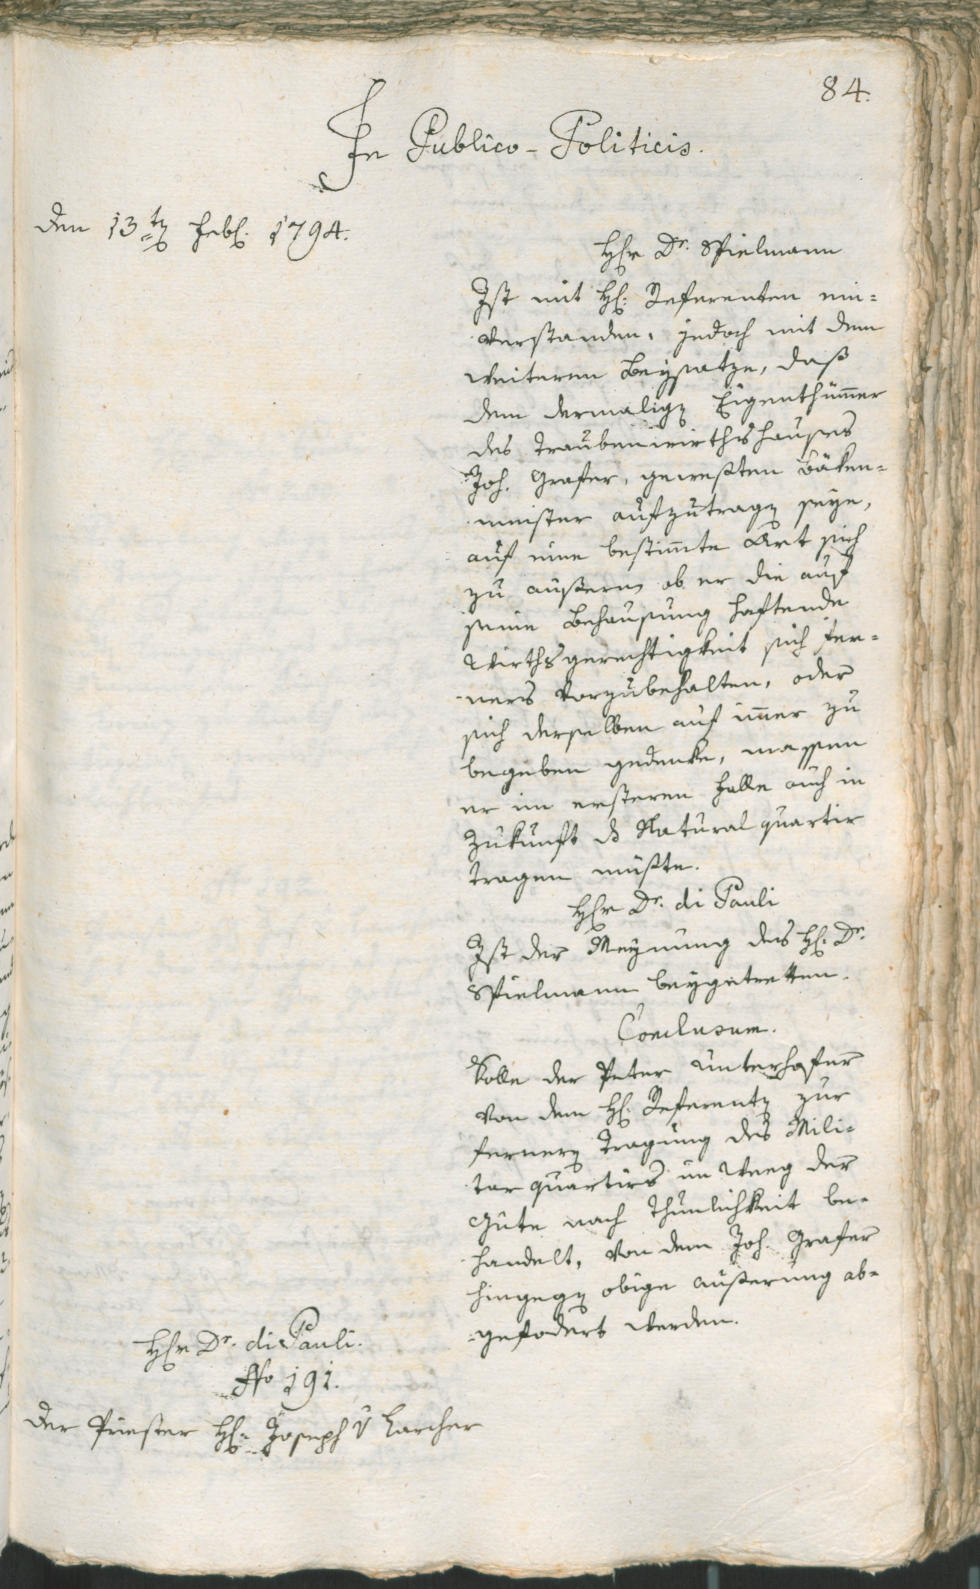 84.
In Publico-Politicis.
den 13ten Febr. 1794.
Hr Dr. Spielmann
Ist mit H: Referenten ein-
verstanden, jedoch mit dem
weiteren Beysatze, daß
dem dermalign Eigenthümer
des Traubenwirthshauses
Joh. Grafer, gewesten Bäken-
meister aufzutragn seye,
auf eine bestimte Art sich
zu äußern ob er die auf
seine Behausung haftende
Wirthsgerechtigkeit sich fer-
ners vorzubehalten, oder
sich derselben auf imer zu
begeben gedenke, massen
er im ersteren Falle auch in
Zukunft ds Natural quartir
tragen müßte.
Hr Dr. di Pauli
Ist der Meynung des H: Dr.
Spielmann beygetretten.
Conclusum.
Solle der Peter Unterhofer
von dem H: Referentn zur
fernern Tragung des Mili-
tar quartirs im Weeg der
Güte nach Thunlichkeit be-
handelt, von dem Joh. Grafer
hingegn obige äußerung ab-
gefodert werden.
Hr Dr. di Pauli.
No 191.
Der Priester H: Joseph v Larcher